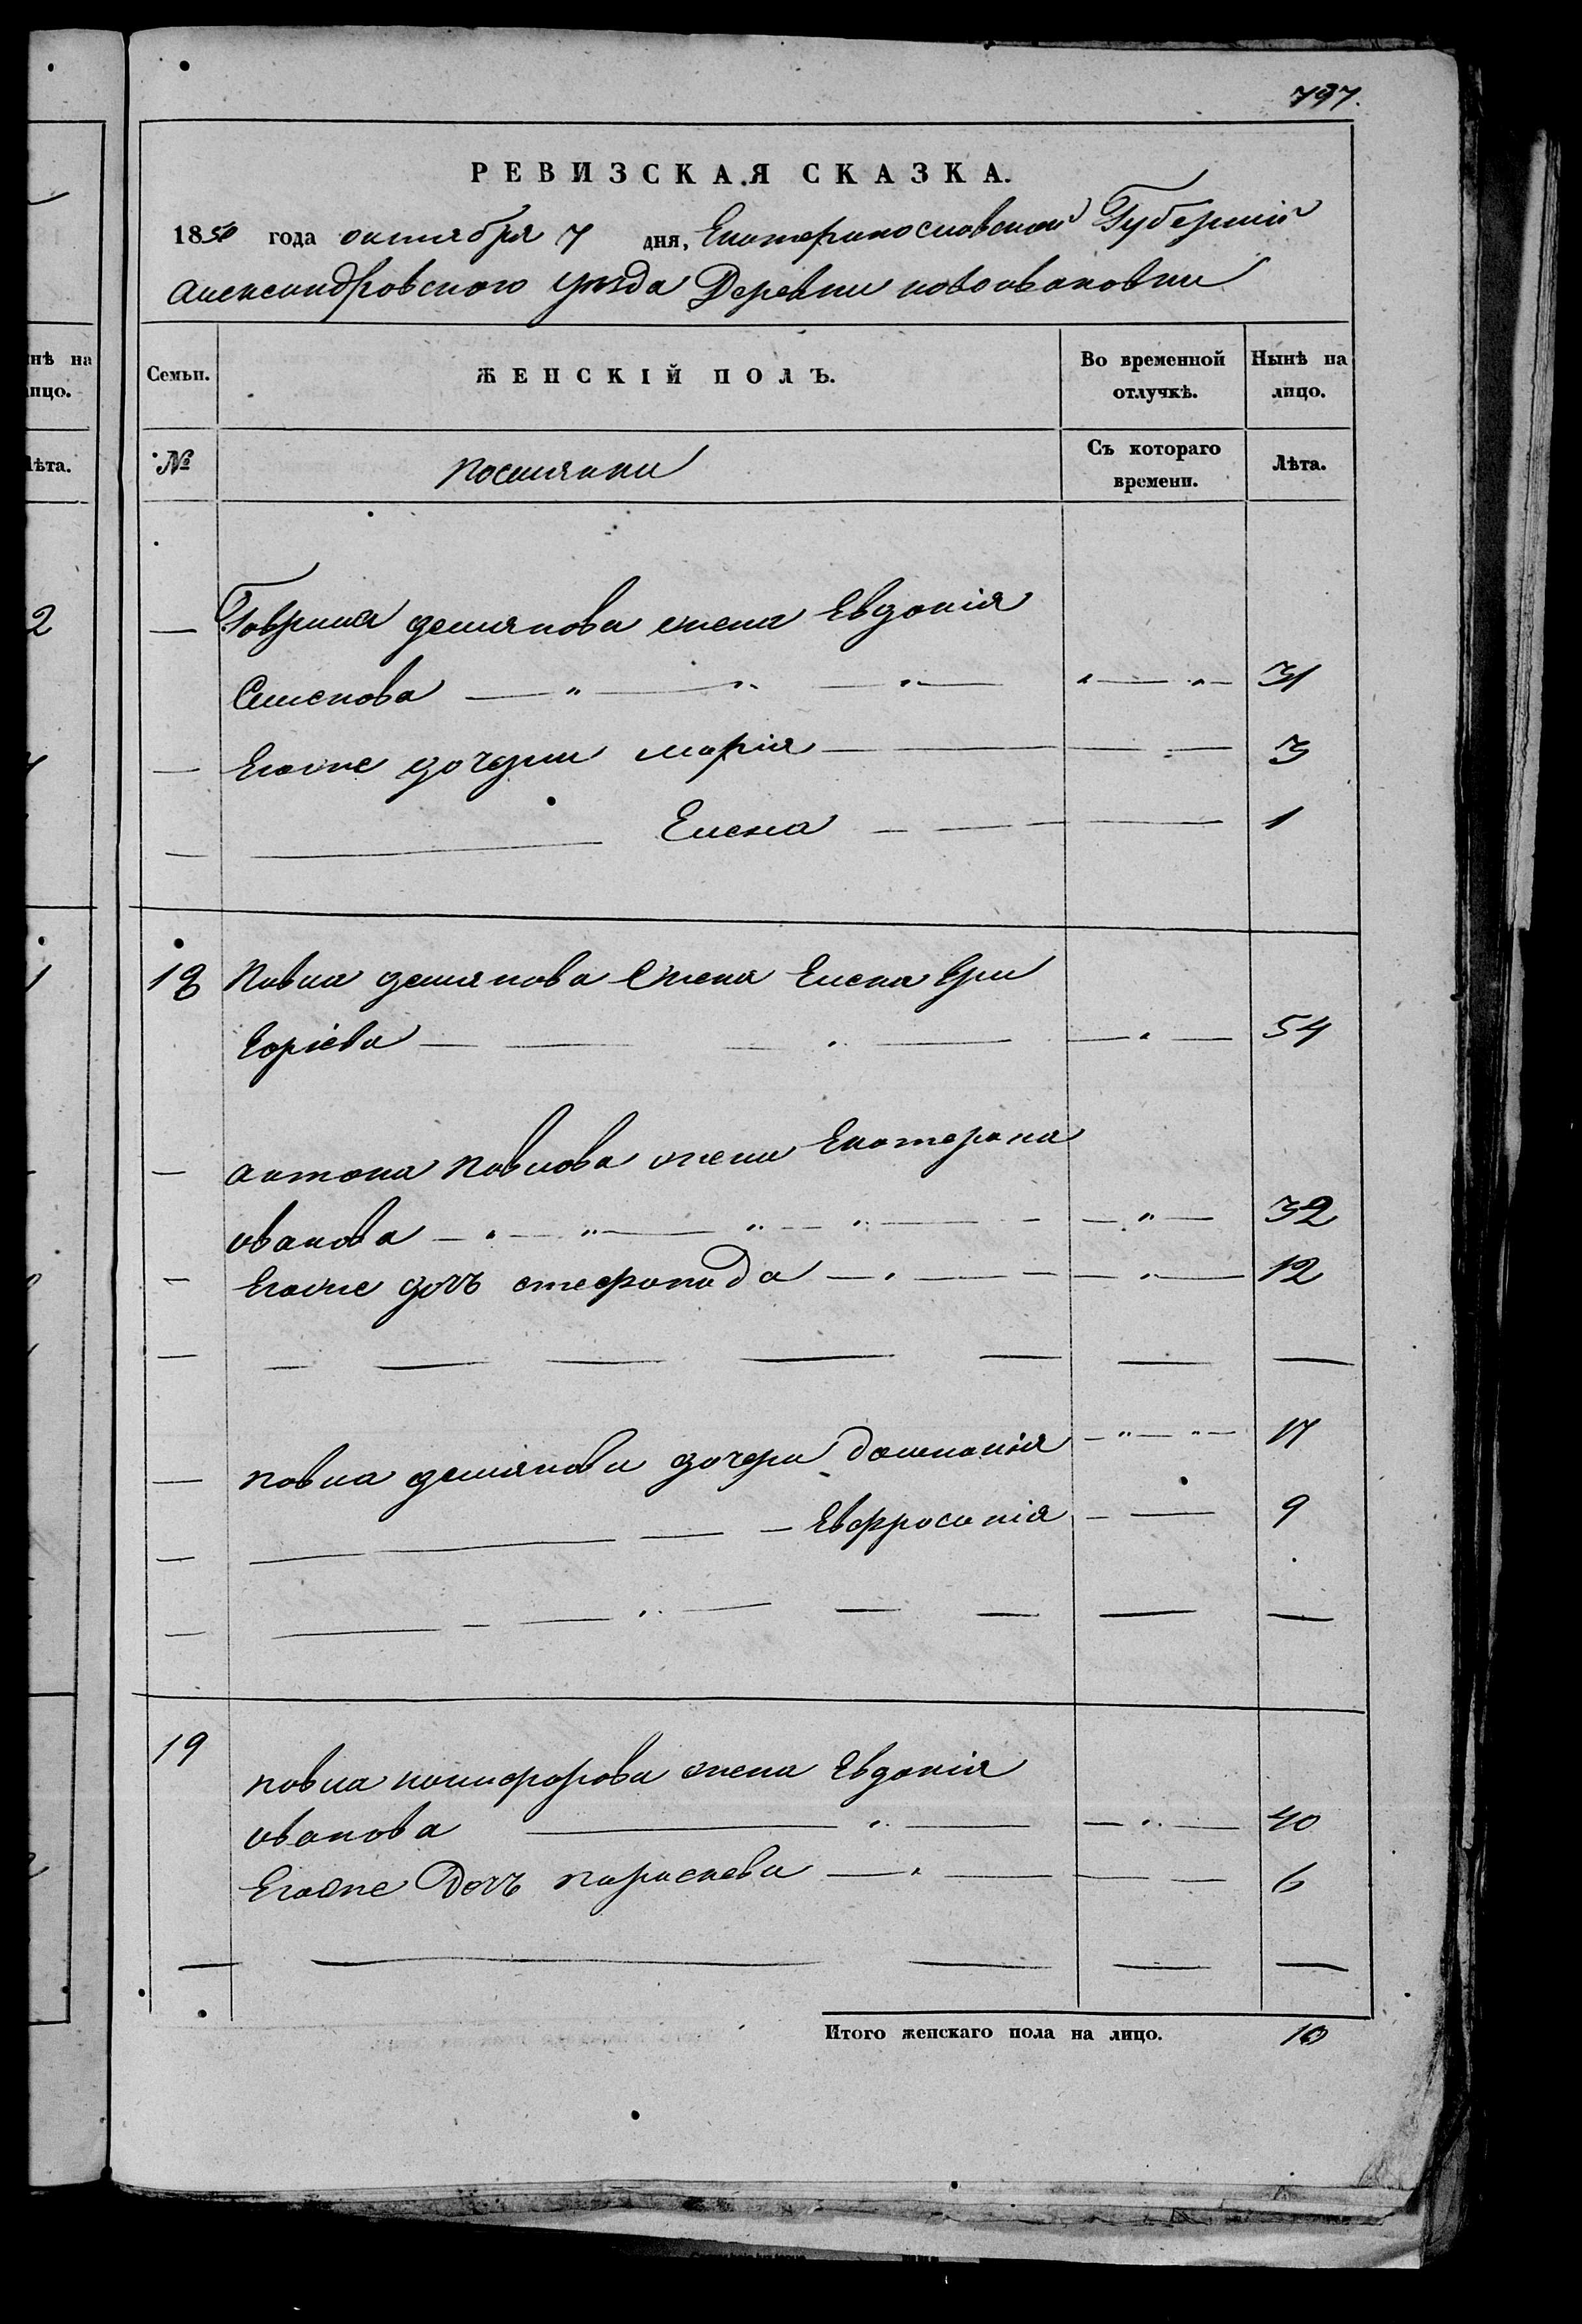 797.
РЕВИЗСКАЯ СКАЗКА.
1850 года октября 7 дня, Екатеринославской Губернiи
Александровского уезда Деревни новоивановки
нѣ на
лицо.
Лѣта.
Семьи. ЖЕНСКІЙ ПОЛЪ. Во временной отлучкѣ. Нынѣ на лицо.
№ поселянки Съ котораго времени. Лѣта.
— Гаврила демянова жена Евдокія
Семенова — „ — „ — „ — 31
— Егоже дочери марія — — 3
— — Елена — — 1
18 Павла демянова Жена Елена Гри
горіева — — — 54
— антона павлова жена Екатерина
иванова — „ — „ — „ — 32
— Егоже дочь стефанида — — 12
— — — — — — —
— павла демянова дочери домнікія — „ — 17
— — — — Евфросинія — — 9
— — — — — — —
19 павла никифорова жена Евдокія
иванова — „ — — „ — 40
Егоже Дочь параскева — — 6
— — — — —
Итого женскаго пола на лицо. 10